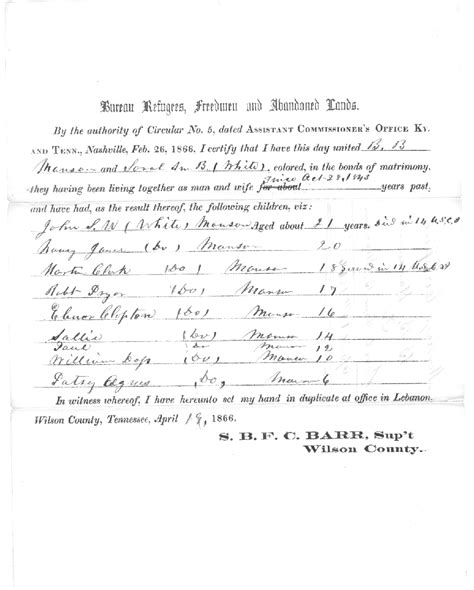 Bureau Refugees, Freedmen and Abandoned Lands.
By the authority of Circular No. 5, dated ASSISTANT COMMISSIONER'S OFFICE KY.
AND TENN., Nashville, Feb. 26, 1866. I certify that I have this day united B. B
Manson and Sarah Ann B. (White), colored, in the bonds of matrimony,
Since Oct 28, 1843
they having been living together as man and wife for about years past,
and have had, as the result thereof, the following children, viz:
John S. W (White) Manson Aged about 21 years. Died in 14 U.S.C.I
Nancy Jane (Do) Manson 20
Martin Clark (Do) Manson 18 Served in 14
Robt Pryor (Do) Manson 17
Elmore Clipton (Do) Manson 16
Sallie (Do) Manson 14
Paul Do Manson 12
William (Do) Manson 10
Patsy Agnes (Do) Manson 6
In witness whereof, I have hereunto set my hand in duplicate at office in Lebanon.
Wilson County, Tennessee, April 19, 1866.
S. B. F. C. BARR, Sup't
Wilson County.